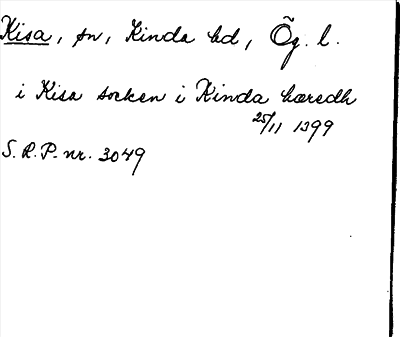 Kisa, sn, Kinda hd, Ög. l.
i Kisa socken i Kinda hæredh
25/11 1399
S.R.P. nr. 3049